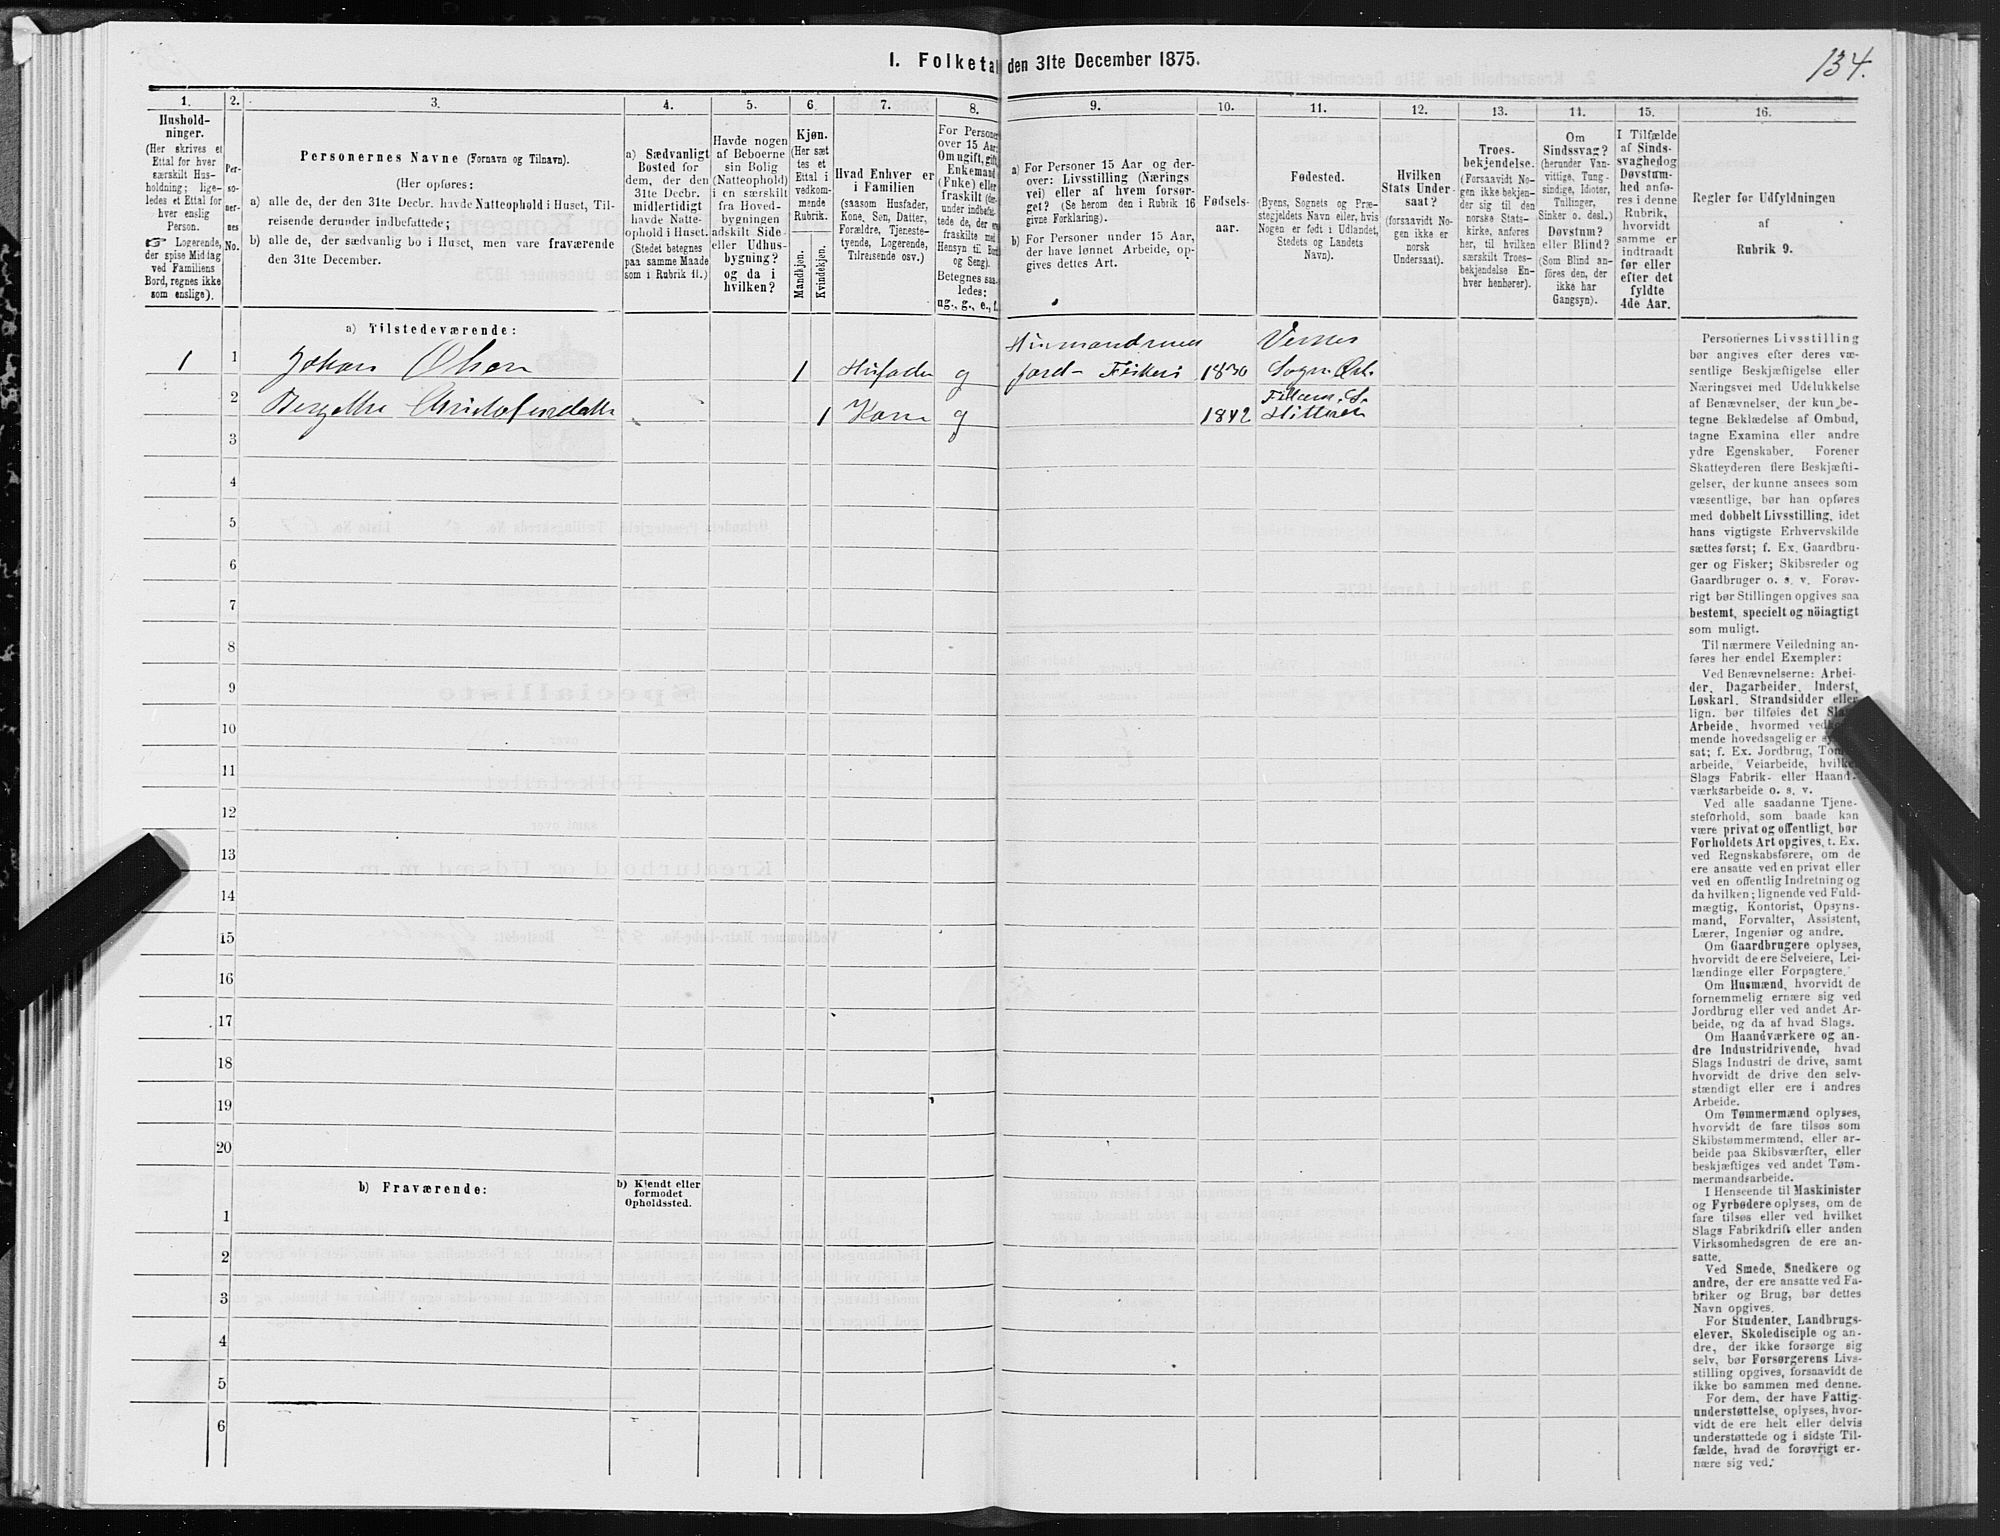 1. Folketal den 31te December 1875.
134.
1. 2. 3. 4. 5. 6. 7. 8. 9. 10. 11. 12. 13. 14. 15. 16.
Hushold-
ninger.
(Her skrives et
Ettal for hver
særskilt Hus-
holdning; lige-
ledes et Ettal for
hver enslig
Person.
☞ Logerende,
der spise Middag
ved Familiens
Bord, regnes ikke
som enslige).
Per-
so-
ner-
nes
No.
Personernes Navne (Fornavn og Tilnavn).
(Her opføres:
a) alle de, der den 31te Decbr. havde Natteophold i Huset, Til-
reisende derunder indbefattede;
b) alle de, der sædvanlig bo i Huset, men vare fraværende
den 31te December.
a) Sædvanligt
Bosted for
dem, der den
31te Decbr.
midlertidigt
havde Natte-
ophold i Huset.
(Stedet betegnes
paa samme Maade
som i Rubrik 11.)
Havde nogen
af Beboerne
sin Bolig
(Natteophold)
i en særskilt
fra Hoved-
bygningen
adskilt Side-
eller Udhus-
bygning?
og da i
hvilken?
Kjøn.
(Her sæt-
tes et
Ettal i
vedkom-
mende
Rubrik.
Mandkjøn.
Kvindekjøn.
Hvad Enhver er
i Familien
(saasom Husfader,
Kone, Søn, Datter,
Forældre, Tjeneste-
tyende, Logerende,
Tilreisende osv.)
For Personer
over 15 Aar:
Om ugift, gift,
Enkemand
(Enke) eller
fraskilt (der-
under indbefat-
tede de, der ere
fraskilte med
Hensyn til Bord
og Seng).
Betegnes saa-
ledes:
ug., g., e., f.
a) For Personer 15 Aar og der-
over: Livsstilling (Nærings
vei) eller af hvem forsør-
get? (Se herom den i Rubrik 16
givne Forklaring).
b) For Personer under 15 Aar,
der have lønnet Arbeide, op-
gives dettes Art.
Fødsels-
aar.
Fødested.
(Byens, Sognets og Præ-
stegjeldets Navn eller, hvis
Nogen er født i Udlandet,
Stedets og Landets
Navn).
Hvilken
Stats Under-
saat?
(forsaavidt No-
gen ikke er
norsk
Undersaat).
Troes-
bekjendelse.
(Forsaavidt No-
gen ikke bekjen-
der sig til den
norske Stats-
kirke, anføres
her, til hvilken
særskilt Troes-
bekjendelse En-
hver henhører).
Om
Sindssvag?
(herunder Van-
vittige, Tung-
sindige, Idioter,
Tullinger,
Sinker o. desl.)
Døvstum?
eller Blind?
(Som Blind an-
føres den, der
ikke har
Gangsyn).
I Tilfælde
af Sinds-
svaghed og
Døvstum-
hed anfø-
res i denne
Rubrik,
hvorvidt
samme er
indtraadt
før eller
efter det
fyldte
4de Aar.
Regler for Udfyldningen
af
Rubrik 9.
a) Tilstedeværende:
1 1 Johan Olsen 1 Husfader g Husmand med Jord- Fiskeri 1830 Sogn Ørl.
2 1 Kone g 1842 Fillan S. Hitteren
3
4
5
6
7
8
9
10
11
12
13
14
15
16
17
18
19
20
b) Fraværende:
b) Kjendt eller
formodet
Opholdssted.
1
2
3
4
5
6
Personernes Livsstilling
bør angives efter deres væ-
sentlige Beskjæftigelse eller
Næringsvei med Udelukkelse
af Benævnelser, der kun be-
tegne Beklædelse af Ombud,
tagne Examina eller andre
ydre Egenskaber. Forener
Skatteyderen flere Beskjæfti-
gelser, der kunne ansees som
væsentlige, bør han opføres
med dobbelt Livsstilling, idet
hans vigtigste Erhvervskilde
sættes først; f. Ex. Gaardbru-
ger og Fisker; Skibsreder og
Gaardbruger o. s. v. Forøv-
rigt bør Stillingen opgives saa
bestemt, specielt og nöiagtigt
som muligt.
Til nærmere Veiledning an-
føres her endel Exempler:
Ved Benævnelserne: Arbei-
der, Dagarbeider, Inderst,
Løskarl, Strandsidder eller
lign. bør tilføies det Slags
Arbeide, hvormed vedkom-
mende hovedsagelig er syssel-
sat; f. Ex. Jordbrug, Tømmer-
arbeide, Veiarbeide, hvilket
Slags Fabrik- eller Haand-
værksarbeide o. s. v.
Ved alle saadanne Tjene-
steforhold, som baade kan
være privat og offentligt, bør
Forholdets Art opgives, t. Ex.
ved Regnskabsførere, om de
ere ansatte ved en privat eller
ved en offentlig Indretning og
da hvilken; lignende ved Fuld-
mægtig, Kontorist, Opsyns-
mand, Forvalter, Assistent,
Lærer, Ingeniør og andre.
Om Gaardbrugere oplyses,
hvorvidt de ere Selveiere, Lei-
lændinge eller Forpagtere.
Om Husmænd, hvorvidt de
fornemmelig ernære sig ved
Jordbrug eller ved andet Ar-
beide, og da af hvad Slags.
Om Haandværkere og an-
dre Industridrivende, hvad
Slags Industri de drive, samt
hvorvidt de drive den selv-
stændigt eller ere i andres
Arbeide.
Om Tømmermænd oplyses,
hvorvidt de fare tilsøs som
Skibstømmermænd, eller ar-
beide paa Skibsværfter, eller
beskjæftiges ved andet Tøm-
mermandsarbeide.
I Henseende til Maskinister
og Fyrbødere oplyses, om de
fare tilsøs eller ved hvilket
Slags Fabrikdrift eller anden
Virksomhedsgren de ere an-
satte.
Ved Smede, Snedkere og
andre, der ere ansatte ved Fa-
briker og Brug, bør dettes
Navn opgives.
For Studenter, Landbrugs-
elever, Skoledisciple og an-
dre, der ikke forsørge sig
selv, bør Forsørgerens Livs-
stilling opgives, forsaavidt de
ikke bo sammen med denne.
For dem, der have Fattig-
understøttelse, oplyses, hvor-
vidt de ere helt eller delvis
understøttede og i sidste Til-
fælde, hvad de forøvrigt er-
nære sig ved.